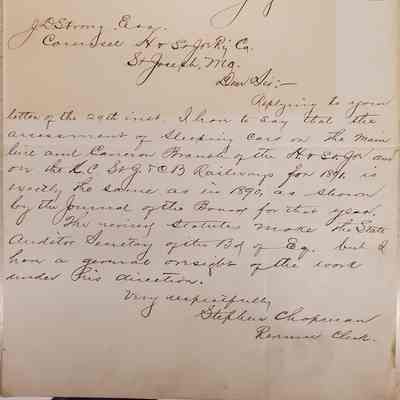 J D Strong Esq.
Counsel H & St Jo R'y Co.
St Joseph, Mo.
Dear Sir:-
Replying to your
letter of the 29th inst. I have to say that the
assessment of Sleeping Cars on the Main
line and Cameron Branch of the H & St Jo and
on the K.C. St J & C B Railways for 1891 is
exactly the same as in 1890, as shown
by the Journal of the Board for that year.
The revised Statutes make the State
Auditor Secretary of the Bd of Eq. but I
have a general oversight of the work
under his direction.
Very respectfully
Stephen Chapman
Revenue Clerk.